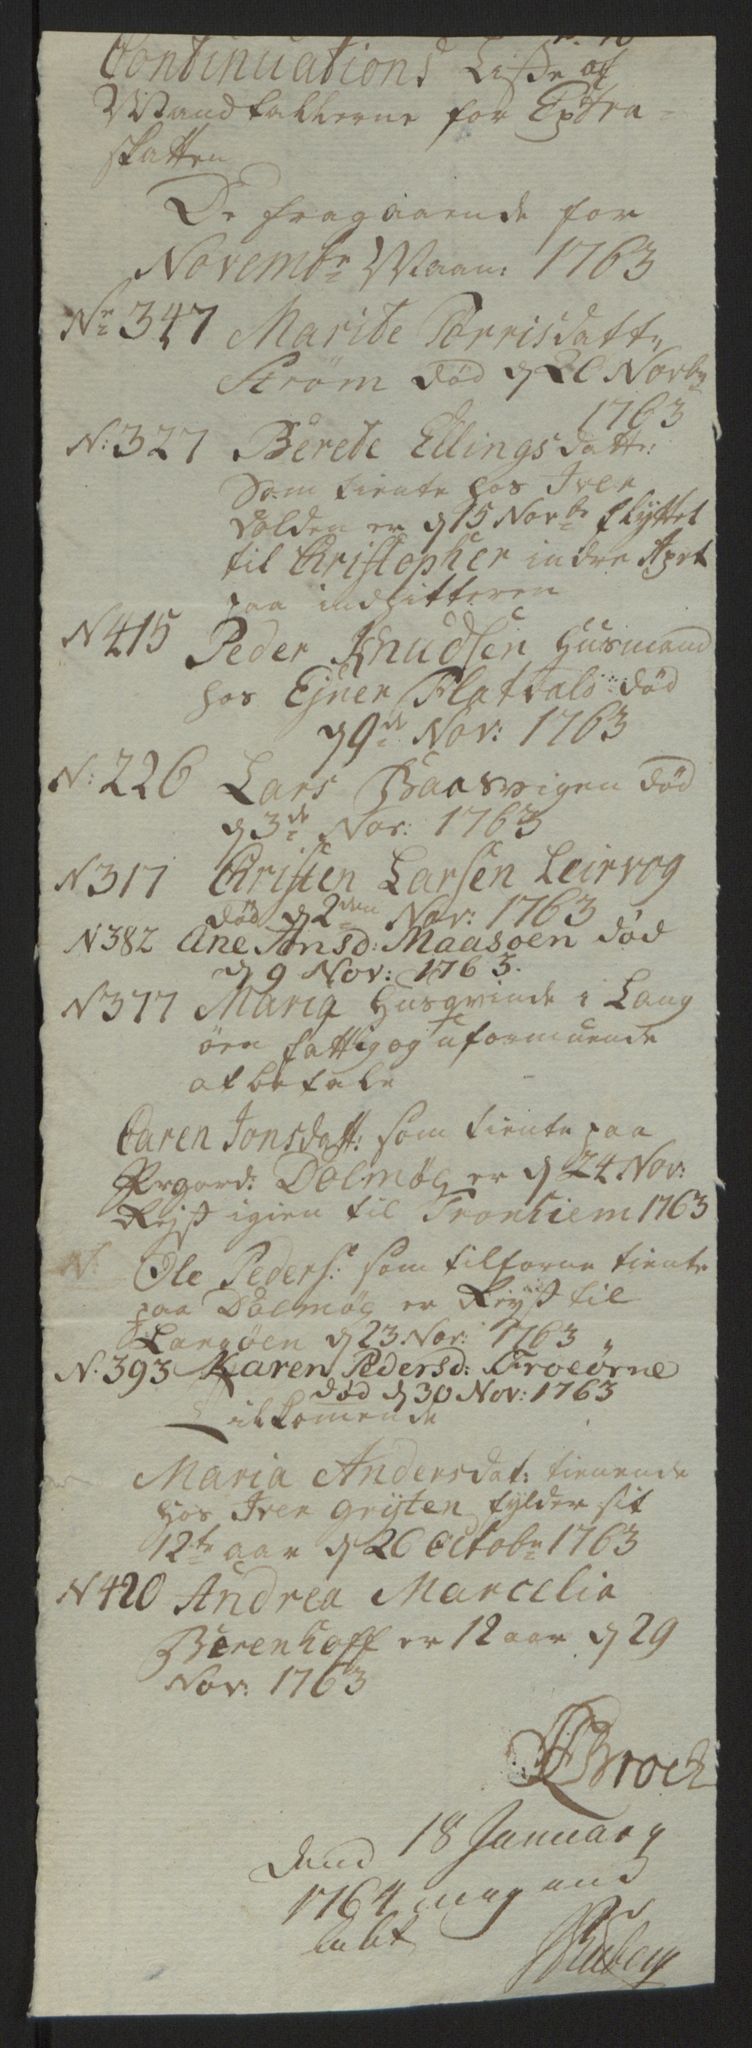 Continuations Liste af
Mandtallerne for Extra-
skatten
De fragaaende for
Novembr Maan: 1763
Nr 347 Marite Torrisdatt.
Strøm død d 20 Novbr
1763
N: 327 Berete Ellingsdatt:
som tiente hos Iver
Volden er d 15 Novbr flyttet
til Christopher indre
paa indhitteren
N 415 Peder Knudsen Husmand
hos Ejner Flatvals død
d 9de Nov: 1763
N: 226 Lars Baasvigen død
d 3de Nov: 1763
N 317 Christen Larsen Leirvog
død d 2den Nov: 1763
N 382 Ane Jonsd: Maasøen død
d 9 Nov: 1763.
N 377 Maria Husqvinde i Lang
øen fattig og uformuende
at betale
Caren Jonsdatt: som tiente paa
Prgard: Dolmøe er d 24 Nov:
Rejst igien til Tronhiem 1763
N: Ole Peders: som tilforne tiente
paa Dolmøe er Reyst til
Langøen d 23 Nov: 1763
N: 393 Karen Pedersd: Froeørne
død d 30 Nov: 1763
Tilkomende
Maria Andersdat: tienende
hos Iver Grijten fylder sit
12te aar d 26 Octobr 1763
N 420 Andrea Marcelia
Berenhoff er 12 aar d 29
Nov: 1763
Brock
dend 18 January
1764